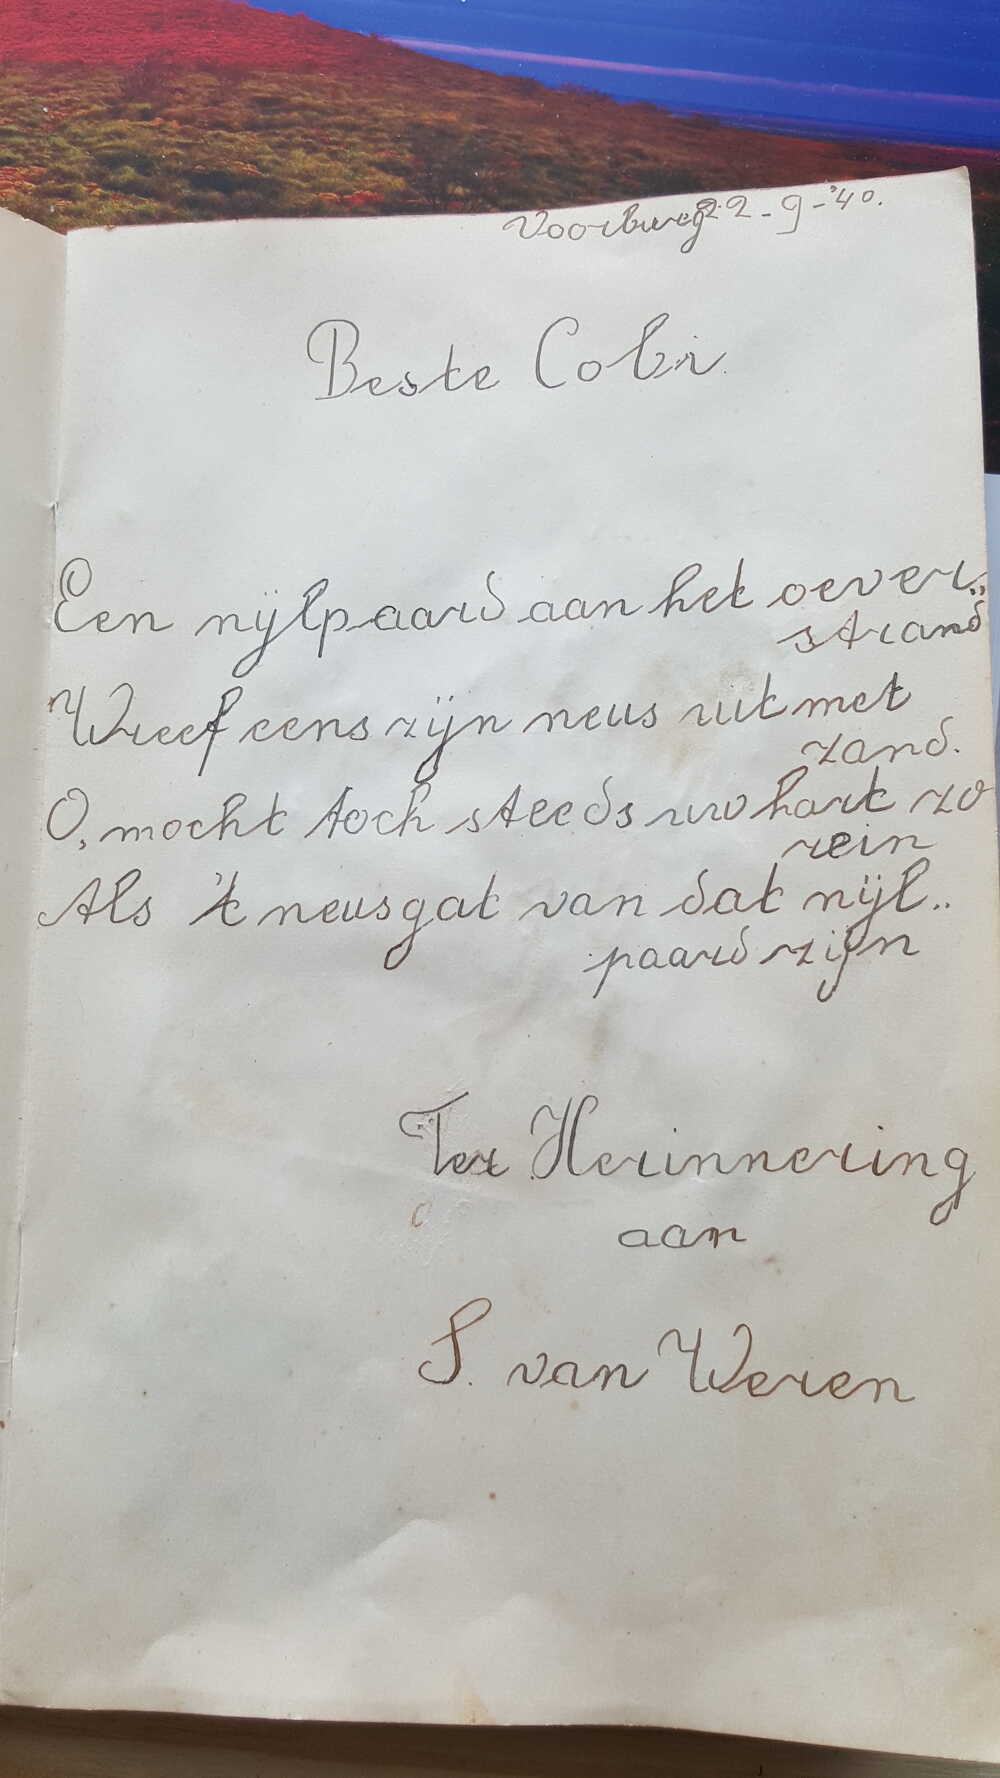 Voorburg 22-9-'40.
Beste Cobi.
Een nijlpaard aan het oever..
strand
Wreef eens zijn neus uit met
zand.
O, mocht toch steeds uw hart zo
rein
Als 't neusgat van dat nijl..
paard zijn
Ter Herinnering
aan
S. van Weren